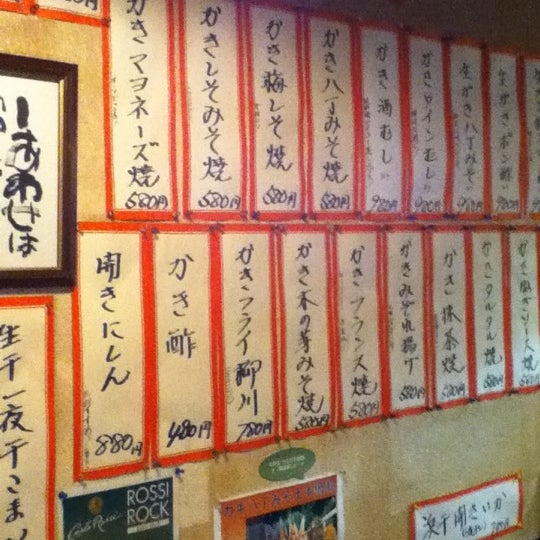 かきマヨネーズ焼 580円
かきしそみそ焼 580円
かき梅しそ焼 580円
かき八丁みそ焼 580円
かき酒むし 980円
かきワインむし 980円
生がき八丁みそ 980円
生がきポン酢 980円
しあわせは
開きにしん 880円
かき酢 480円
かきフライ柳川 780円
かき木の芽みそ焼 580円
かきフランス焼 580円
かきみぞれ揚げ 580円
かき抹茶焼 580円
かきタルタル焼 580円
生干一夜干こまい
Carlo Rossi
ROSSI
ROCK
浜干開きいか